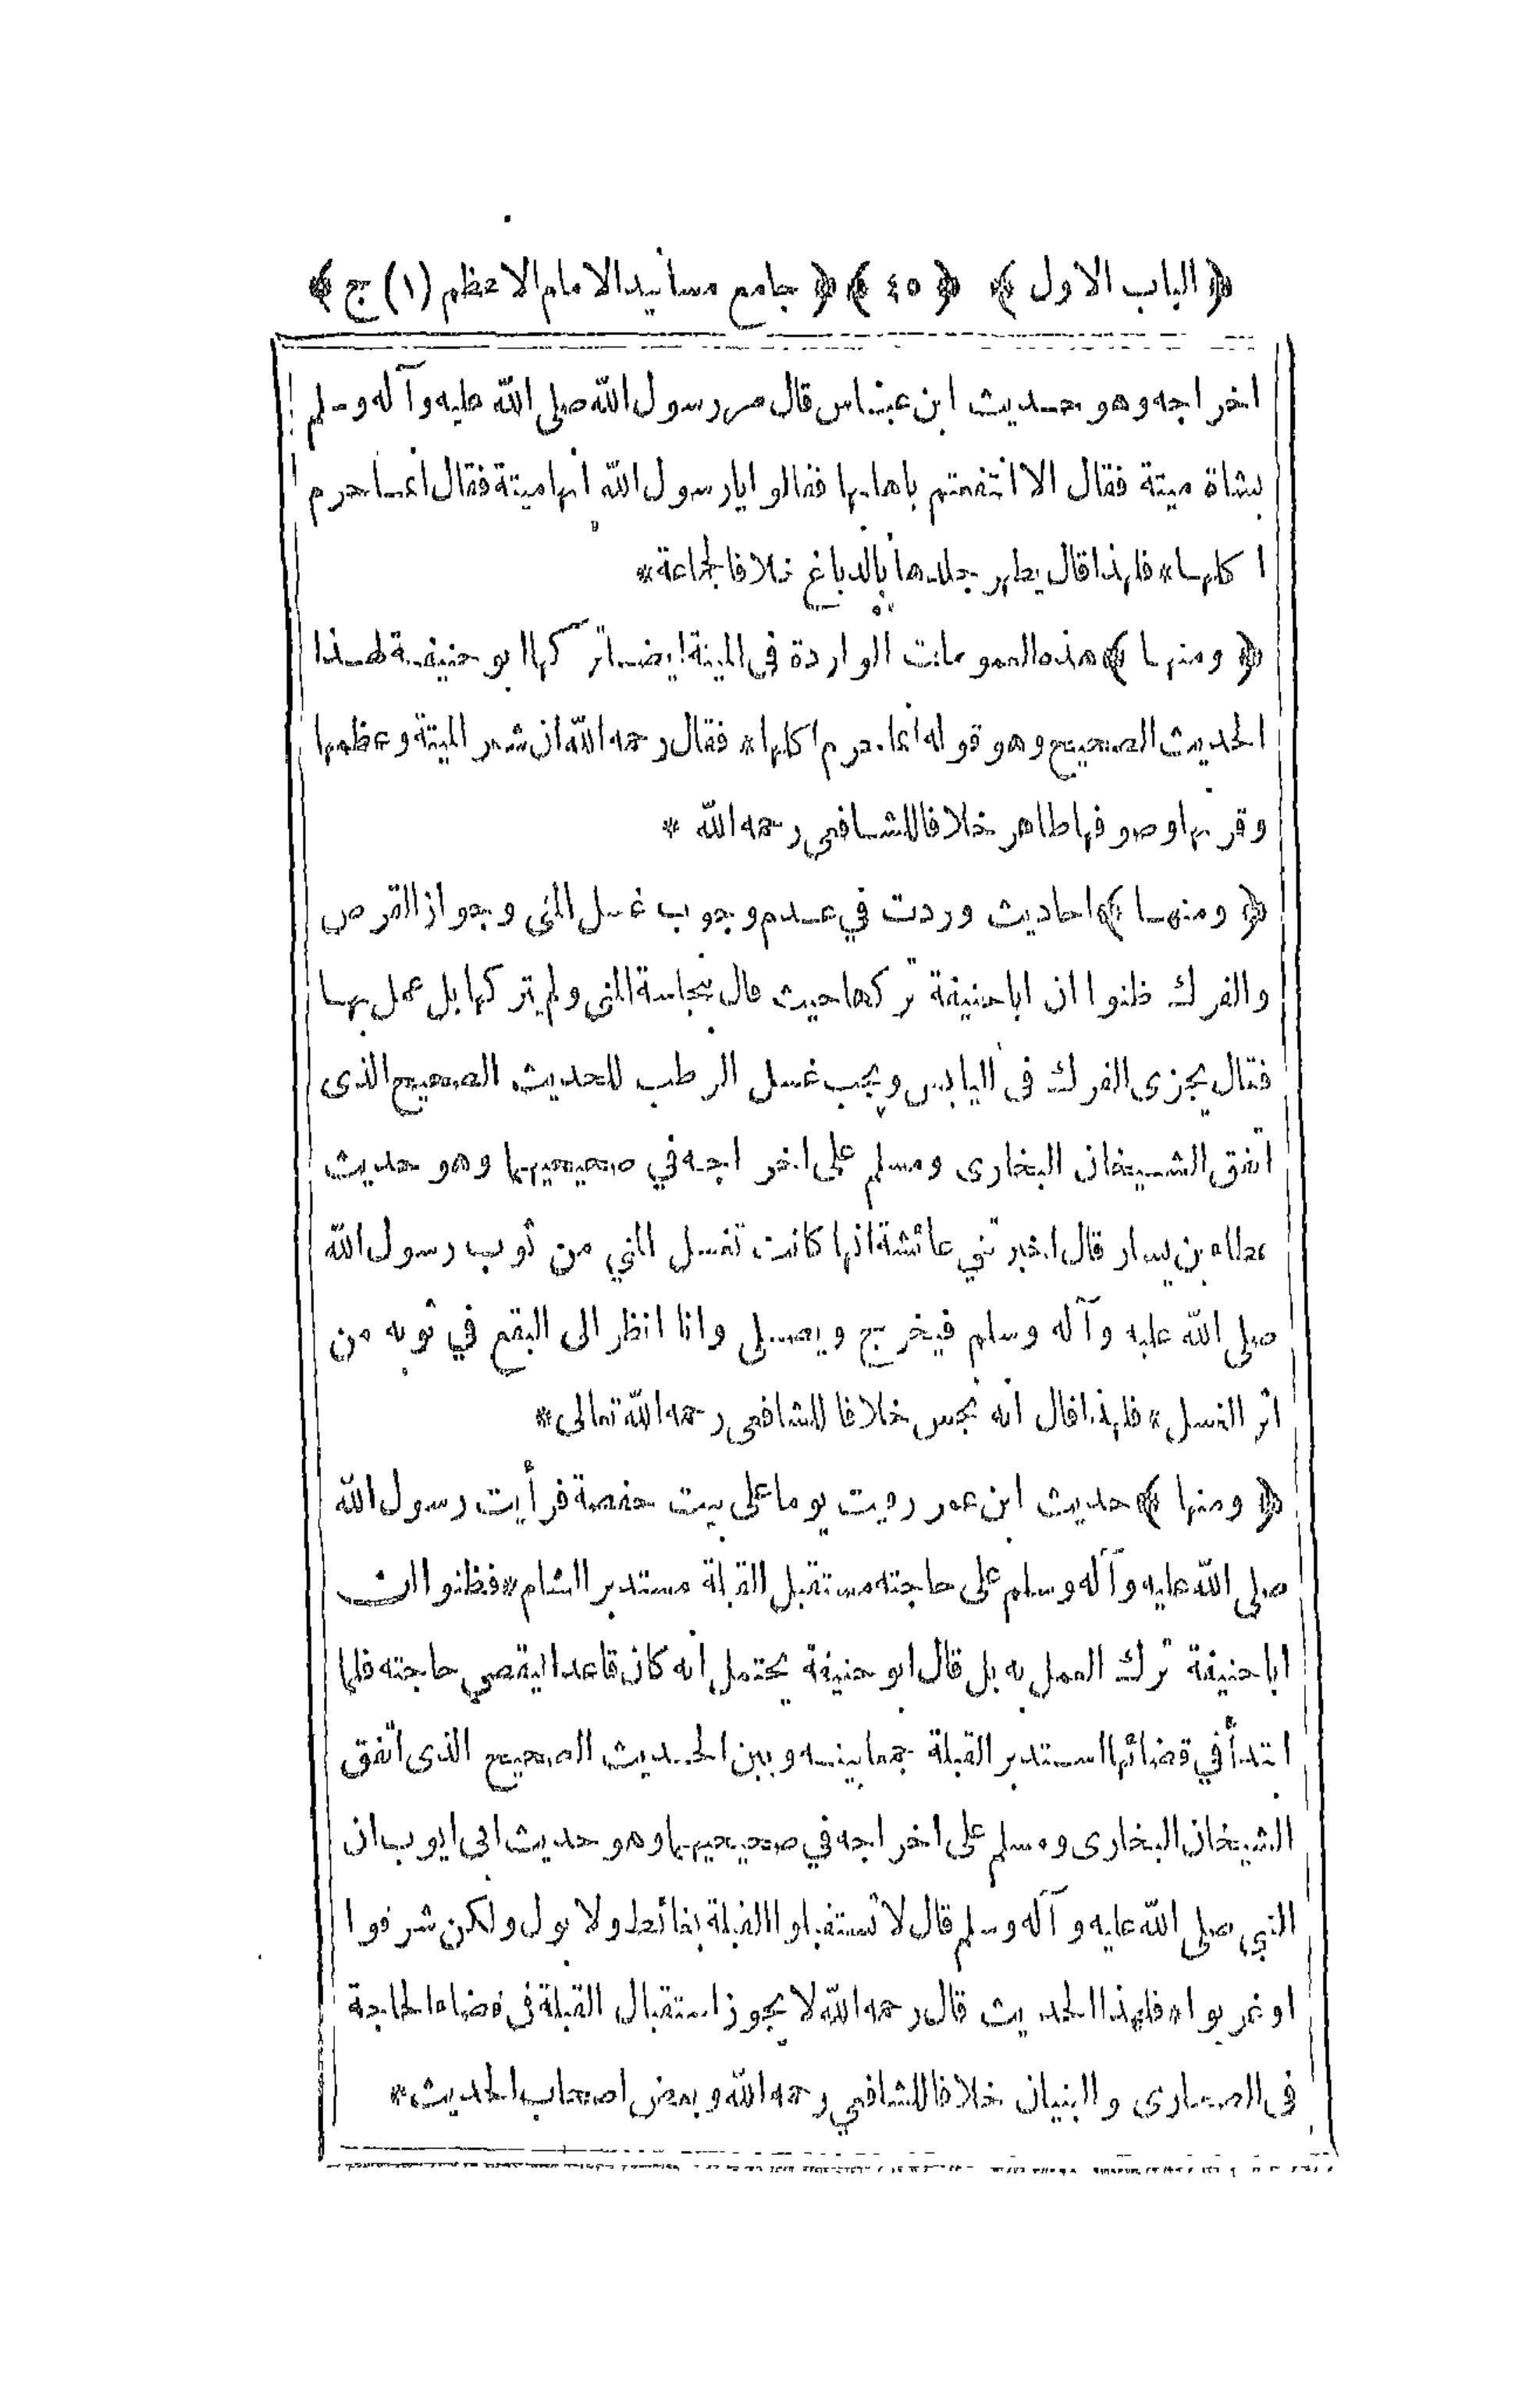 ﴿ الباب الاول ﴾ ﴿ ٤٥ ﴾ ﴿ جامع مسانيد الامام الاعظم (١) ج ﴾
اخراجه وهو حديث ابن عباس قال مر رسول الله صلى الله عليه وآله وسلم
بشاة ميتة فقال الا انتفعتم باهابها فقالوا يا رسول الله انها ميتة فقال انما حرم
اكلها * فلهذا قال يطهر جلدها بالدباغ خلافا لجماعة *
﴿ ومنها ﴾ هذه العمومات الواردة في الميتة ايضا تركها ابو حنيفة لهذا
الحديث الصحيح وهو قوله انما حرم اكلها * فقال رحمه الله ان شعر الميتة وعظمها
وقرنها وصوفها طاهر خلافا للشافعي رحمه الله *
﴿ ومنها ﴾ احاديث وردت في عدم وجوب غسل المنى وجواز القرص
والفرك ظنوا ان ابا حنيفة تركها حيث قال بنجاسة المنى ولم يتركها بل عمل بها
فقال يجزى الفرك فى اليابس ويجب غسل الرطب للحديث الصحيح الذى
اتفق الشيخان البخارى ومسلم على اخراجه في صحيحيهما وهو حديث
عطاء بن يسار قال اخبرتني عائشة انها كانت تغسل المني من ثوب رسول الله
صلى الله عليه وآله وسلم فيخرج ويصلى وانا انظر الى البقع في ثوبه من
اثر الغسل * فلهذا قال انه نجس خلافا للشافعى رحمه الله تعالى *
﴿ ومنها ﴾ حديث ابن عمر رقيت يوما على بيت حفصة فرأيت رسول الله
صلى الله عليه وآله وسلم على حاجته مستقبل القبلة مستدبر الشام * فظنوا ان
ابا حنيفة ترك العمل به بل قال ابو حنيفة يحتمل انه كان قاعدا ليقضي حاجته فلما
ابتدأ في قضائها استدبر القبلة جمعا بينه وبين الحديث الصحيح الذى اتفق
الشيخان البخارى ومسلم على اخراجه في صحيحيهما وهو حديث ابى ايوب ان
النبي صلى الله عليه وآله وسلم قال لا تستقبلوا القبلة بغائط ولا بول ولكن شرقوا
او غربوا * فلهذا الحديث قال رحمه الله لا يجوز استقبال القبلة فى قضاء الحاجة
فى الصحارى والبنيان خلافا للشافعي رحمه الله وبعض اصحاب الحديث *